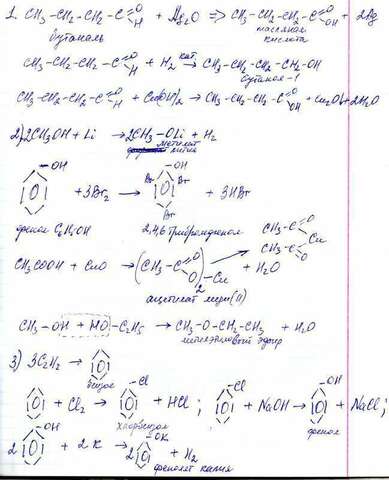 1. CH3-CH2-CH2-C=O H + Ag2O => CH3-CH2-CH2-C=O OH + 2Ag
бутаналь масляная кислота
CH3-CH2-CH2-C=O H + H2 кат. → CH3-CH2-CH2-CH2-OH
бутанол-1
CH3-CH2-CH2-C=O H + Cu(OH)2 → CH3-CH2-CH2-C=O OH + Cu2O + 2H2O
2) 2CH3OH + Li → 2CH3-OLi + H2
метилат лития
-OH + 3Br2 → -OH Br Br Br + 3HBr
фенол C6H5OH 2,4,6 трибромфенол
CH3-C=O
CH3-C=O Cu
O
CH3COOH + CuO → (CH3-C=O O)2-Cu + H2O
ацетат меди (II)
CH3-OH + HO-C2H5 → CH3-O-CH2-CH3 + H2O
метилэтиловый эфир
3) 3C2H2 →
бензол
+ Cl2 → -Cl + HCl; -Cl + NaOH → -OH + NaCl;
хлорбензол фенол
2 -OH + 2K → 2 -OK + H2
фенолят калия